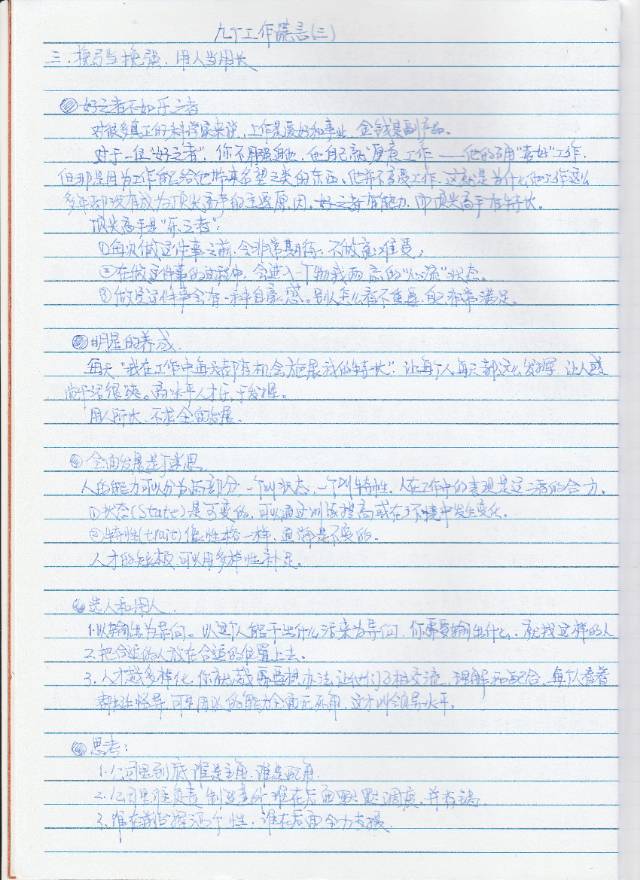 九个工作谎言(三)
三、挽弓当挽强，用人当用长
好之者不如乐之者
对很多真正的科学家来说，工作是爱好和事业，金钱是副产品。
对于一位"好之者"，你不用强迫他，他自己就"厚度"工作——他的确"喜好"工作，
但那是因为工作能给他带来名望之类的东西，他并不享受工作，这就是为什么他工作这么
多年却没有成为顶尖高手的主要原因。好之者有能力，但顶尖高手有特长。
顶尖高手是"乐之者"：
①每次做这件事之前，会非常期待，不做就难受；
②在做这件事的过程中，会进入一个物我两忘的"心流"状态。
③做完这件事会有一种自豪感。别人怎么看不重要，自己非常满足。
明星的养成
每天"我在工作中每天都有机会施展我的特长"，让每个人每天都这么发挥，让人感
觉干活很爽。高水平人才乐于发挥。
用人所长，不求全面发展。
全面发展是个迷思
人的能力可以分为两部分，一个叫状态，一个叫特性，人在工作中的表现是这二者的合力。
①状态(State)是可变的，可以通过训练提高或在环境中发生变化。
②特性(trait)像性格一样，通常是不变的。
人才的短板，可以用多样性补足。
选人和用人
1.以输出为导向。以这个人能干出什么活来为导向，你需要输出什么，就找这样的人
2.把合适的人放在合适的位置上去。
3.人才越多样化，你就越需要想办法让他们互相交流、理解和配合，每个人看着
都挺怪异，可用以的能力全面无死角，这才叫领导水平。
思考：
1.公司里到底谁是主角，谁是配角
2.公司里谁负责 谁在后面默默调度，并存活
3.谁在前台挥洒个性，谁在后面全力支援